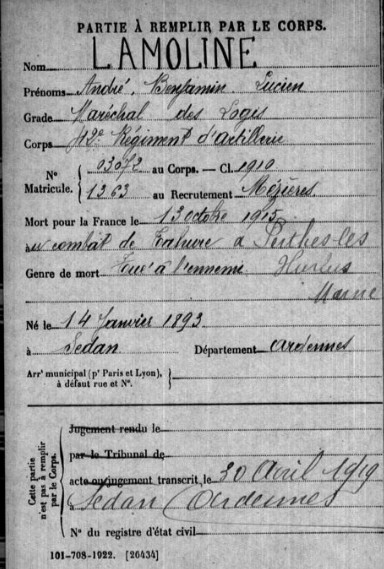 PARTIE À REMPLIR PAR LE CORPS.
Nom LAMOLINE
Prénoms André, Benjamin, Lucien
Grade Maréchal des Logis
Corps 42e Régiment d'Artillerie
N° Matricule. { 03072 au Corps. — Cl. 1910
1363 au Recrutement Mézières
Mort pour la France le 13 octobre 1915
au combat de Tahure à Perthes-les
Genre de mort Tué à l'ennemi Hurlus
Marne
Né le 14 Janvier 1893
à Sedan Département Ardennes
Arrt municipal (pr Paris et Lyon), à défaut rue et N°. {
Cette partie n'est pas à remplir par le Corps.
Jugement rendu le
par le Tribunal de
acte ou jugement transcrit le 30 Avril 1919
à Sedan (Ardennes)
N° du registre d'état civil
101-708-1922. [26434]